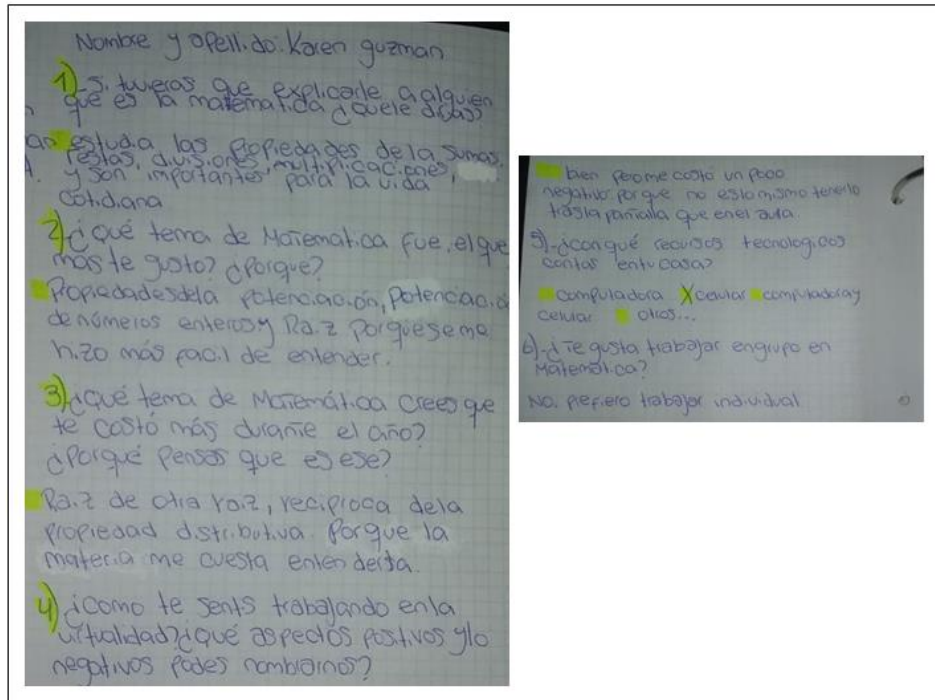 Nombre y apellido: Karen guzman
1)-Si tuvieras que explicarle a alguien
que es la matematida ¿quele diías?
estudia las propiedades de la sumas,
restas, divisiones, multiplicaciones,
y son importantes para la vida
cotidiana
2)¿qué tema de Matematica fue el que
más te gusto? ¿Porque?
Propiedadesdela potenciación, potenciación
de números enteros y Raiz porquese me
hizo más facil de entender.
3)¿qué tema de Matemática crees que
te costó más durante el año?
¿Porqué Pensas que es ese?
Raiz de otra raiz, reciproca dela
propiedad distributiva. Porque la
materia me cuesta entenderta.
4)¿como te sentis trabajando enla
virtualidad?¿qué aspectos positivos y/o
negativos podes nombrarnos?
bien perome costó un poco
negativo: porque no eslo mismo tenerlo
trasla pantalla que enel aula.
5)-¿conqué recursos tecnologicos
contas entucasa?
computadora X celular computadoray
celular otros...
6)-¿Te gusta trabajar engrupo en
Matematica?
No. prefiero trabajar individual